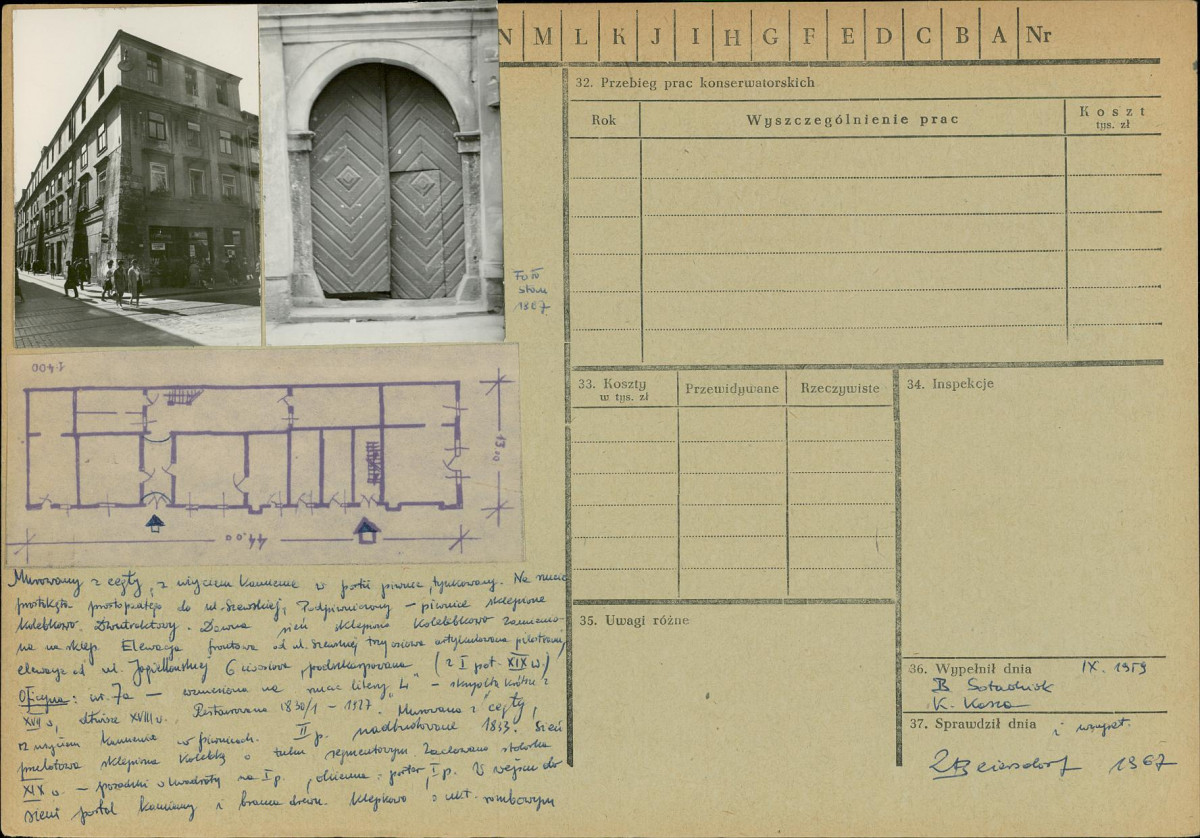 N M L K J I H G F E D C B A Nr
32. Przebieg prac konserwatorskich
Rok
Wyszczególnienie prac
Koszt
tys. zł
33. Koszty
w tys. zł
Przewidywane
Rzeczywiste
34. Inspekcje
35. Uwagi różne
36. Wypełnił dnia IX. 1959
K. Kosa
37. Sprawdził dnia i uzupeł.
Beiersdorf 1967
Foto
stan
1967
1:400
13,00
44,00
Murowany z cegły, z użyciem kamienia w partii piwnic, tynkowany. Na rzucie
prostokąta przyległego do ul. Szewskiej, Podpiwniczony – piwnice sklepione
kolebkowo. Dwutraktowy. Dawna sień sklepiona kolebkowo zamienio-
na na sklep. Elewacja frontowa od ul. Szewskiej trzyosiowa artykułowana pilastrami,
elewacja od ul. Jagiellońskiej 6 cioosiowa, podszkarpowana (z I poł. XIX w.)
Oficyna: nr. 7a – wzniesiona na rzucie litery "L" – skrzydło krótsze z
XVII w, dłuższe XVIII w. Restaurowana 1830/1 – 1927. Murowana z cegły,
z użyciem kamienia w piwnicach. II p. nadbudowane 1833. Sień
przelotowa sklepiona kolebką o łuku segmentowym. Zachowana stolarka
XIX w. – posadzki w kwadraty na I p, okienna: parter, I p. W wejściu do
sieni portal kamienny i brama drewn. klepkowa o ukł. rombowym